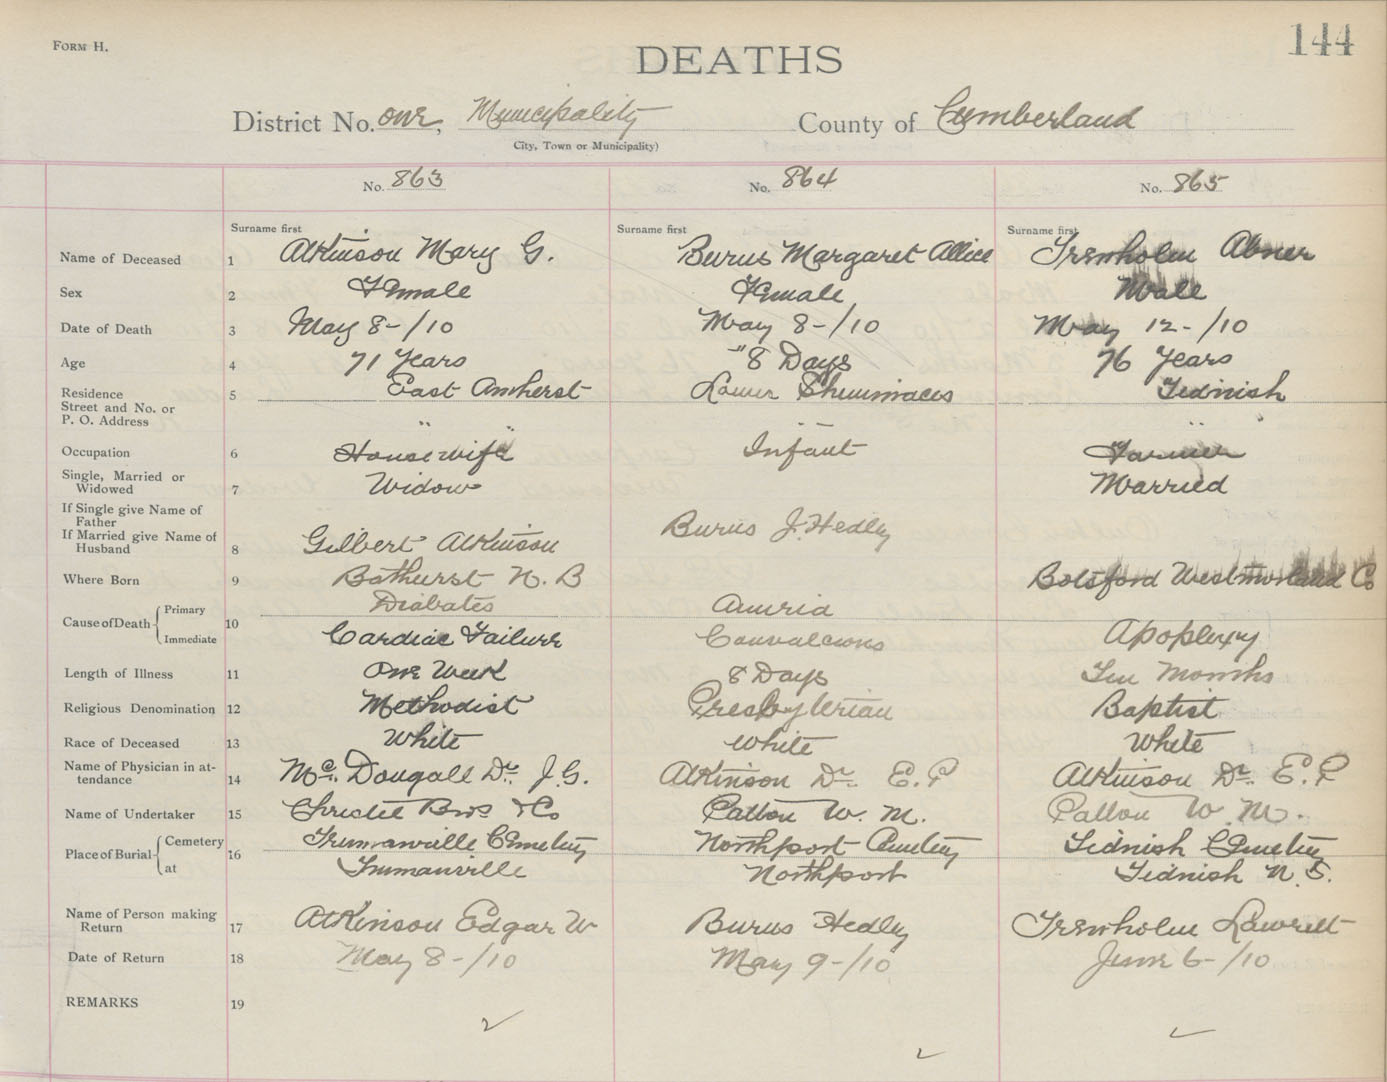 Form H.
144
DEATHS
District No. one, Municipality County of Cumberland
City, Town or Municipality)
No. 863 No. 864 No. 865
Surname first Surname first Surname first
Name of Deceased 1 Atkinson Mary G. Burns Margaret Allice Trenholm Abner
Sex 2 Female Female Male
Date of Death 3 May 8-/10 May 8-/10 May 12-/10
Age 4 71 Years "8 Days 76 Years
Residence 5 East Amherst Lower Shinimacas Tidnish
Street and No. or
P. O. Address " " " " " "
Occupation 6 Housewife Infant Farmer
Single, Married or
Widowed 7 Widow Married
If Single give Name of
Father Burns J. Hedley
If Married give Name of
Husband 8 Gilbert Atkinson
Where Born 9 Bathurst N. B Botsford Westmorland Co
Cause of Death Primary 10 Diabates
Immediate Cardiac Failure Convalcions Apoplexy
Length of Illness 11 One Week 8 Days Ten Months
Religious Denomination 12 Methodist Presbyterian Baptist
Race of Deceased 13 White White White
Name of Physician in at-
tendance 14 Mc. Dougall Dr. J. G. Atkinson Dr. E. F Atkinson Dr. E. F
Name of Undertaker 15 Christie Bros & Co Patton W. M. Patton W. M.
Place of Burial Cemetery 16 Trumanville Cemetery Northport Cemetery Tidnish Cemetery
at Trumanville Northport Tidnish N. S.
Name of Person making
Return 17 Atkinson Edgar W Burns Hedley Trenholm
Date of Return 18 May 8-/10 May 9-/10 June 6-/10
REMARKS 19